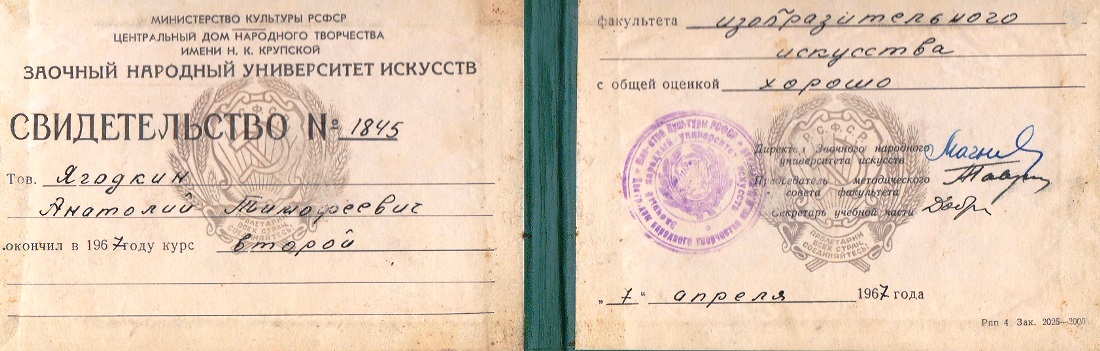 МИНИСТЕРСТВО КУЛЬТУРЫ РСФСР
ЦЕНТРАЛЬНЫЙ ДОМ НАРОДНОГО ТВОРЧЕСТВА
ИМЕНИ Н. К. КРУПСКОЙ
ЗАОЧНЫЙ НАРОДНЫЙ УНИВЕРСИТЕТ ИСКУССТВ
СВИДЕТЕЛЬСТВО № 1845
Тов. Ягодкин
Анатолий Тимофеевич
окончил в 1967 году курс второй
ПРОЛЕТАРИИ
ВСЕХ СТРАН,
СОЕДИНЯЙТЕСЬ!
факультета изобразительного
искусства
с общей оценкой хорошо
Р.С.Ф.С.Р.
Директор Заочного народного
университета искусств
Председатель методического
совета факультета
Секретарь учебной части
ПРОЛЕТАРИИ
ВСЕХ СТРАН,
СОЕДИНЯЙТЕСЬ!
„ 7 “ апреля 1967 года
Рпп 4. Зак. 2025—2000